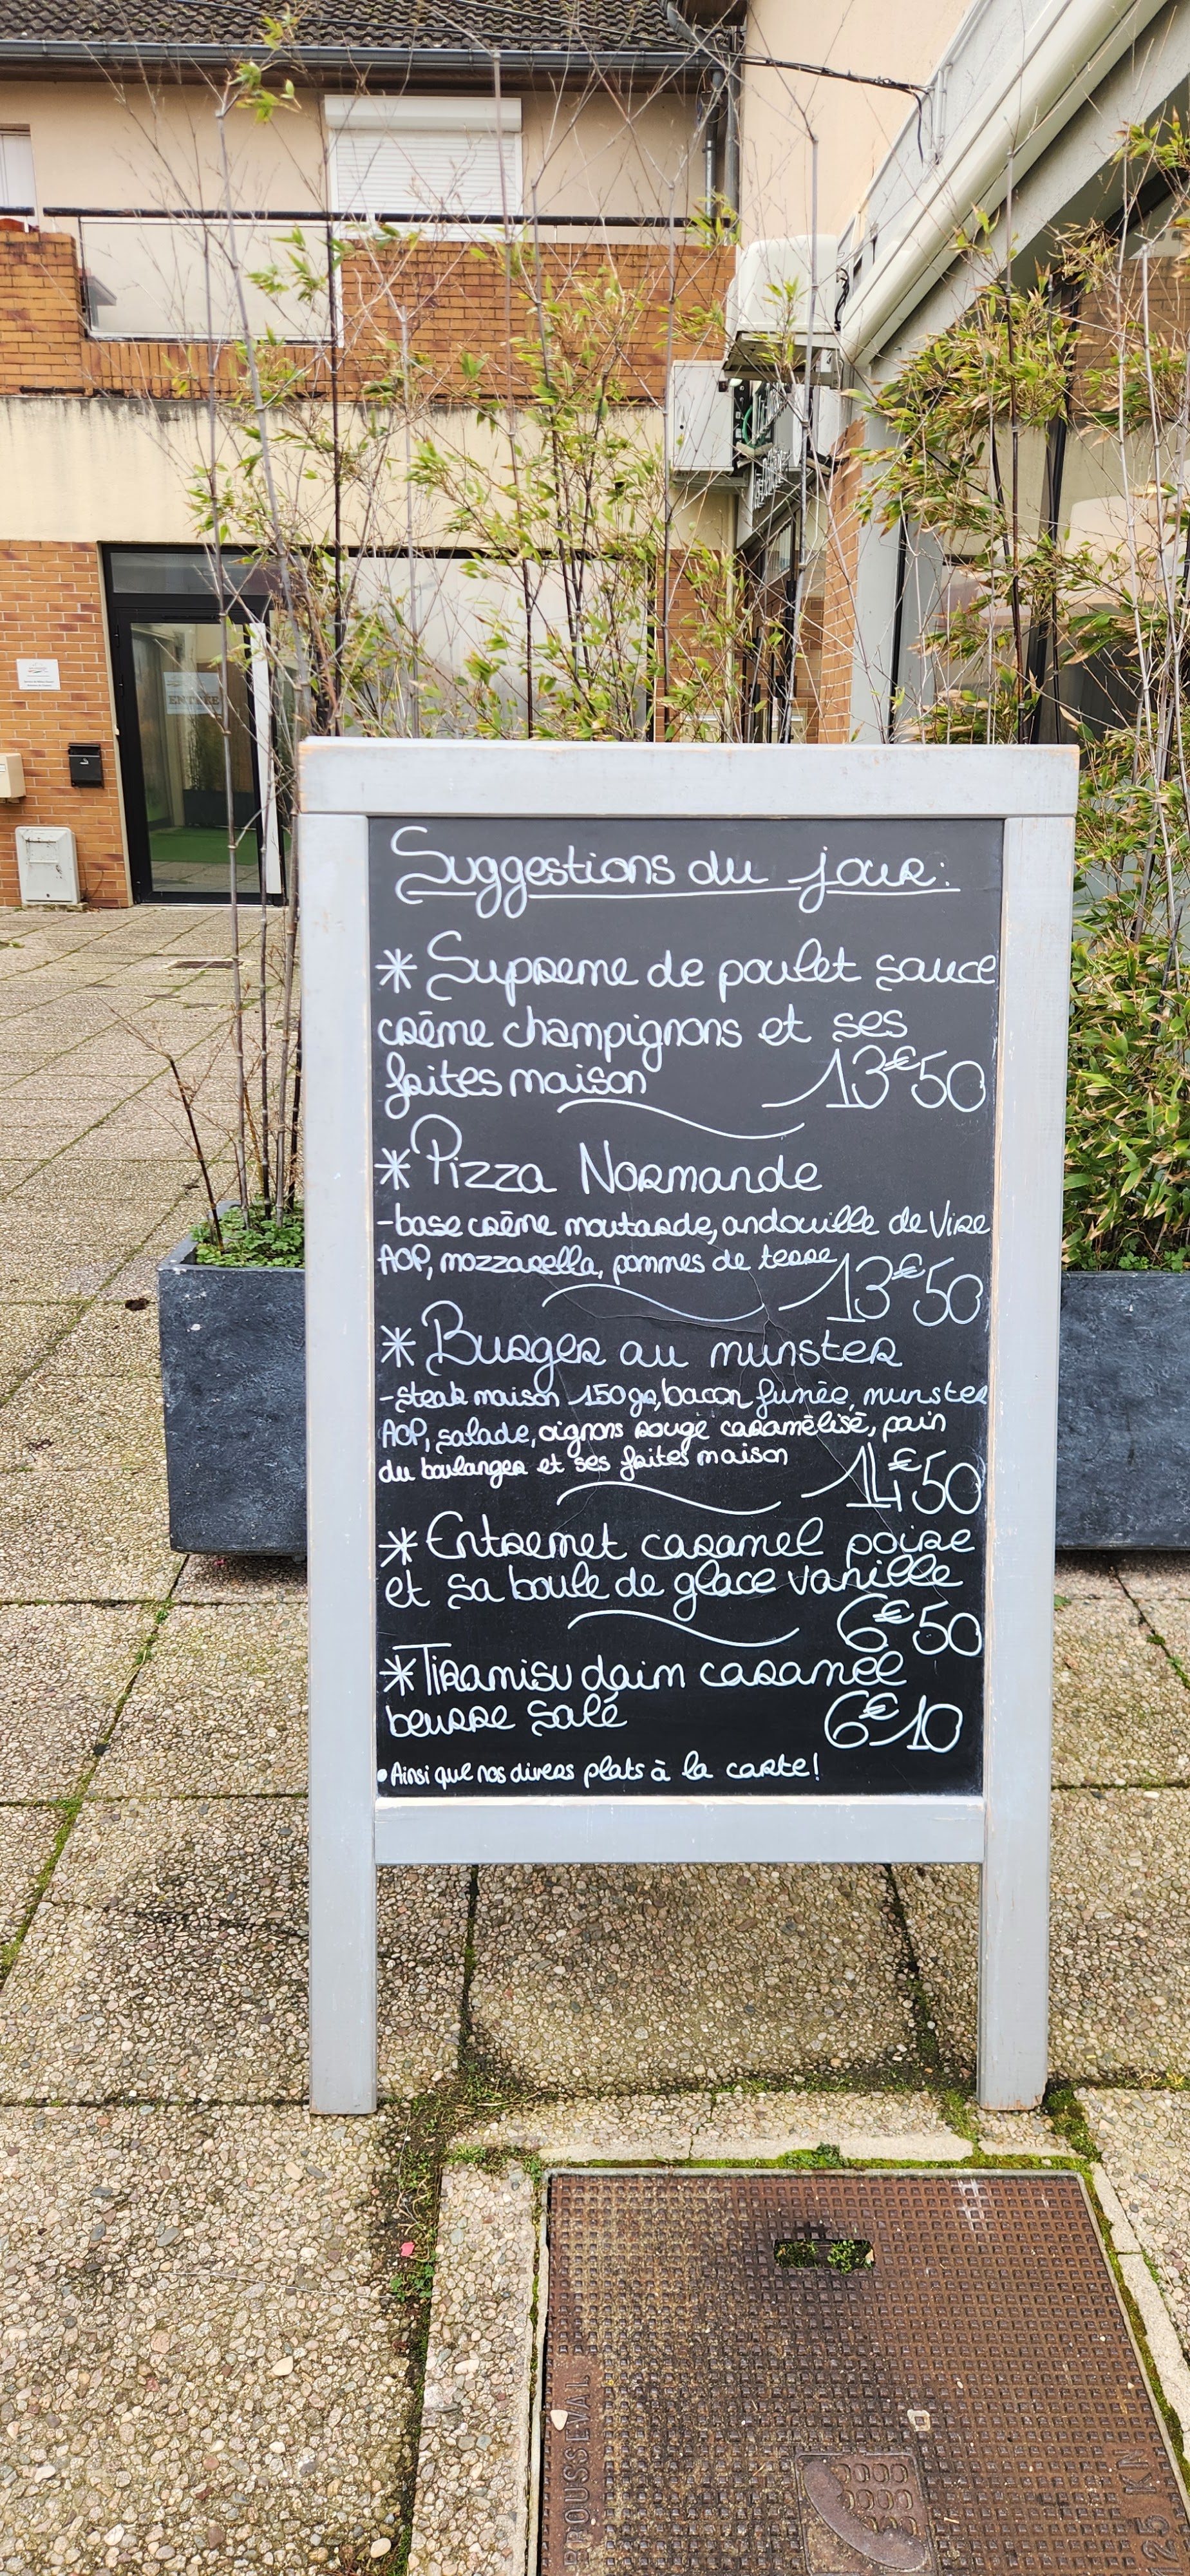 ENTRÉE
Suggestions du jour:
* Supreme de poulet sauce
crème champignons et ses
frites maison 13€50
* Pizza Normande
-base crème moutarde, andouille de Vire
AOP, mozzarella, pommes de terre 13€50
* Burger au munster
-steak maison 150gr, bacon fumée, munster
AOP, salade, oignons rouge caramélisé, pain
du boulanger et ses frites maison 14€50
* Entremet caramel poire
et sa boule de glace vanille
6€50
* Tiramisu daim caramel
beurre salé 6€10
• Ainsi que nos divers plats à la carte!
BROUSSEVAL
125 KN